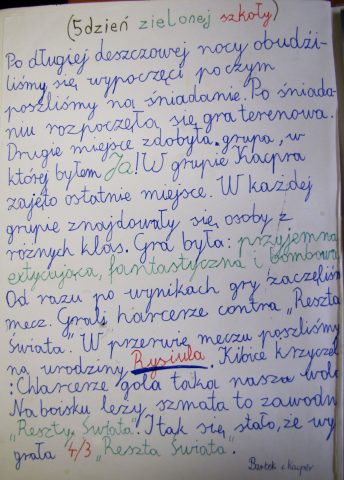 (5 dzień zielonej szkoły)
Po długiej deszczowej nocy obudzi-
liśmy się wypoczęci po czym
poszliśmy na śniadanie. Po śniada-
niu rozpoczęła się gra terenowa.
Drugie miejsce zdobyła grupa, w
której byłem Ja! W grupie Kacpra
zajęto ostatnie miejsce. W każdej
grupie znajdowały się osoby z
róznych klas. Gra była: przyjemna
extycująca, fantastyczna i bombowa
Od razu po wynikach gry zaczęliśm
mecz. Grali harcerze contra "Reszta
Świata". W przerwie meczu poszliśmy
na urodziny Rysiula. Kibice krzyczel
: Charcerze gola taka nasza wola
Na boisku leży szmata to zawodn
"Reszty Świata". I tak się stało, że wy
grała 4/3 "Reszta Świata".
Bartek i Kacper